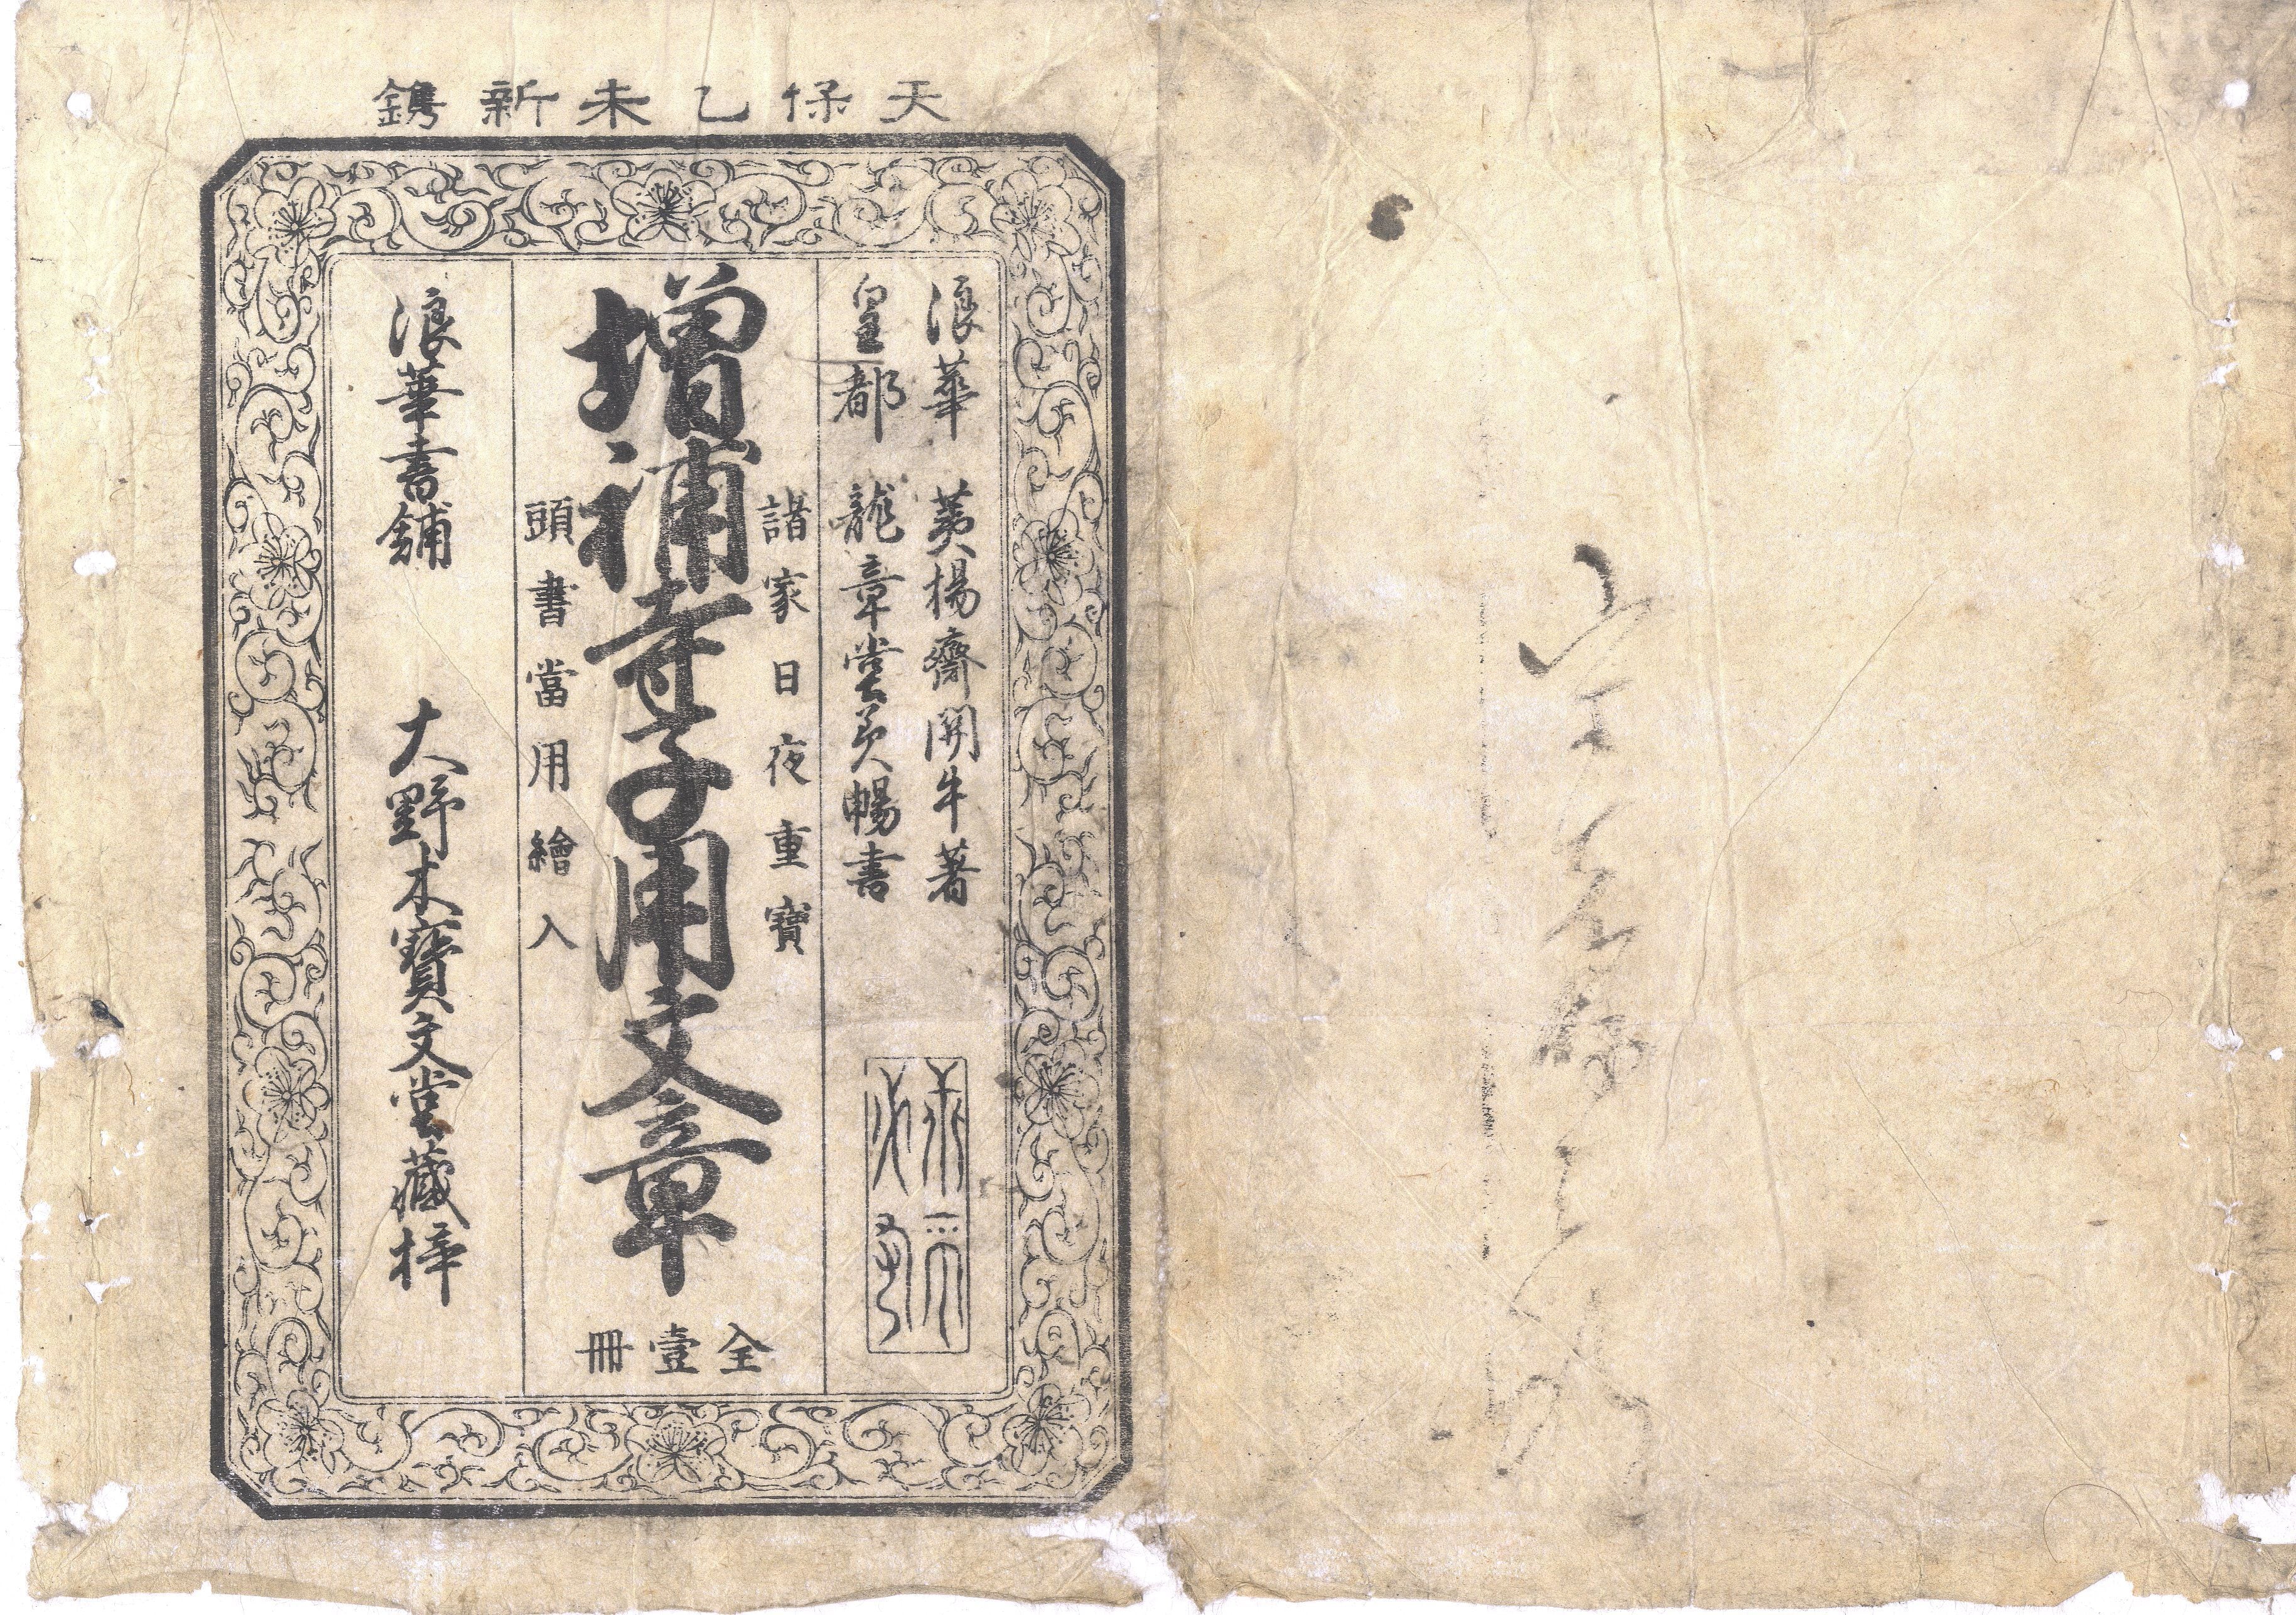 天保乙未新鐫
浪華 荑楊齋開牛著
皇都 龍章堂美暢書
諸家日夜重寶
増補寺子用文章
頭書當用繪入
全壹冊
浪華書舗 大野木寶文堂藏梓